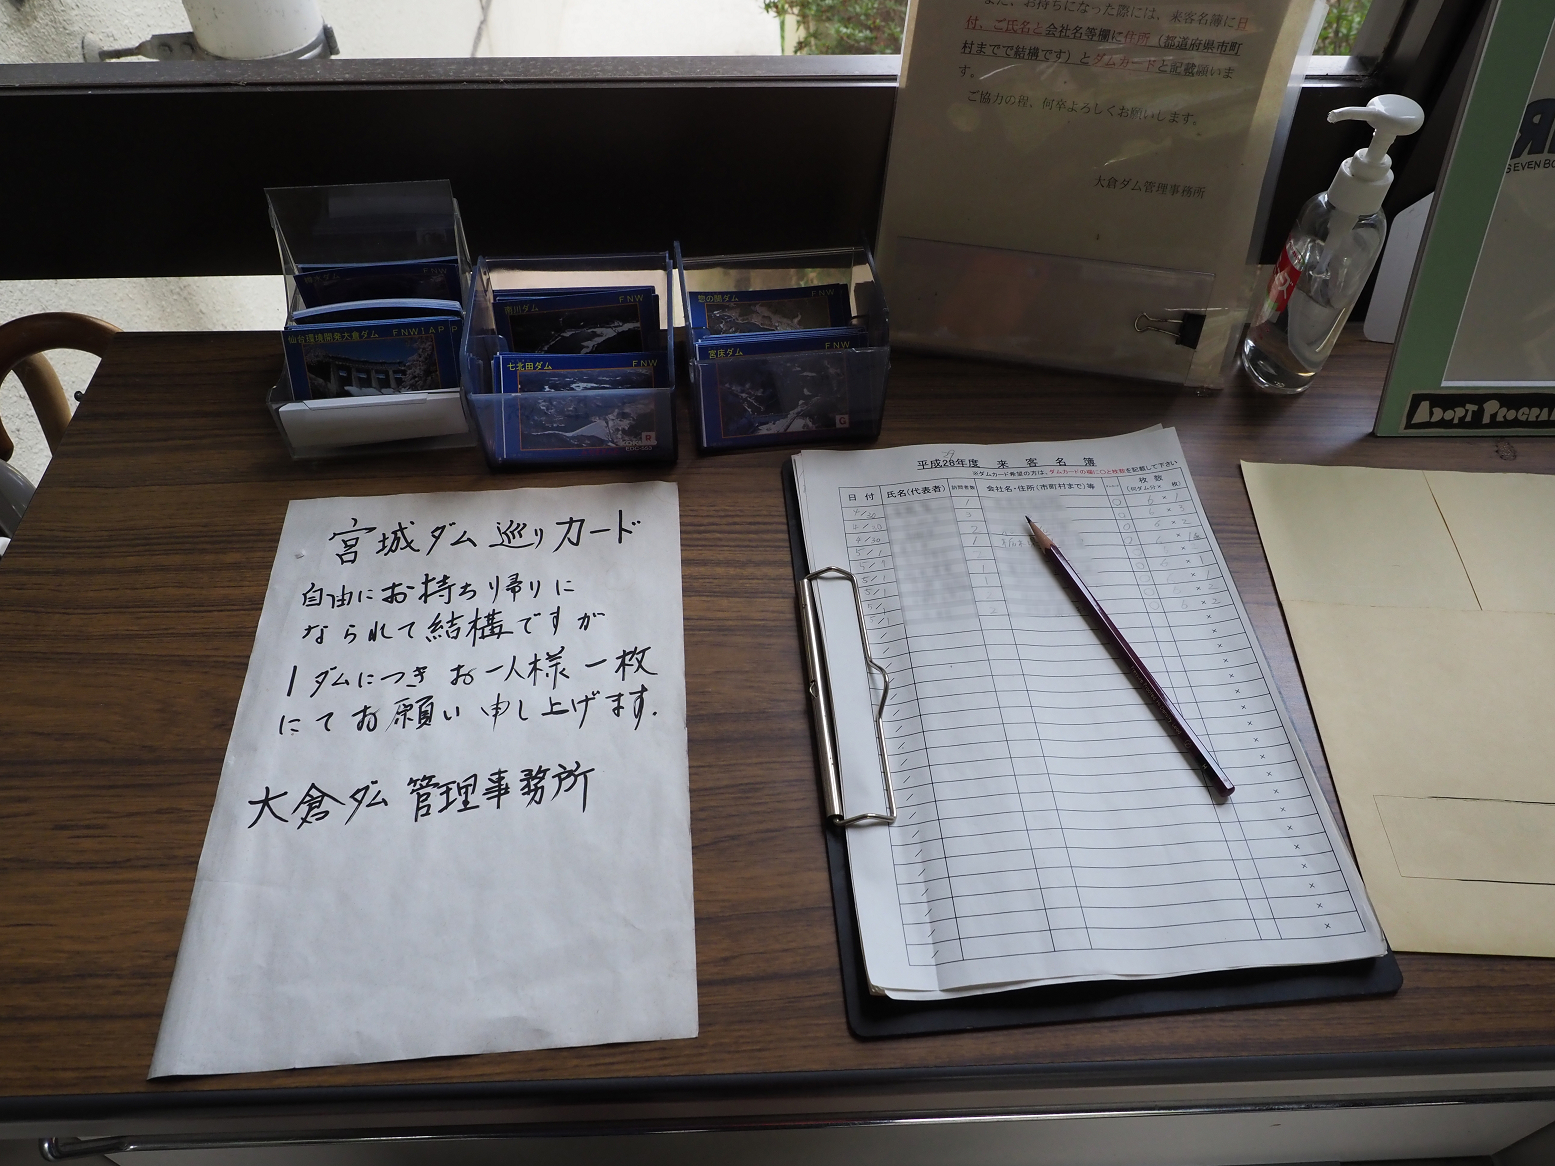 また、お持ちになった際には、来客名簿に日
付、ご氏名と会社名等欄に住所（都道府県市町
村までで結構です）とダムカードと記載願いま
す。
ご協力の程、何卒よろしくお願いします。
大倉ダム管理事務所
FNW
仙台環境開発大倉ダム FNWIAP P
南川ダム FNW
七北田ダム FNW
R
惣の関ダム FNW
宮床ダム FNW
G
SEVEN
ADOPT PROGRAM
宮城ダム巡りカード
自由にお持ち帰りに
なられて結構ですが
1ダムにつきお一人様一枚
にてお願い申し上げます.
大倉ダム管理事務所
平成28年度 来客名簿
29
※ダムカード希望の方は、ダムカードの欄に〇と枚数を記載して下さい
日付 氏名(代表者) 訪問者数 会社名・住所(市町村まで)等 枚数
(何ダム分× 枚)
4/30
4/30
5/1
5/1
5/1